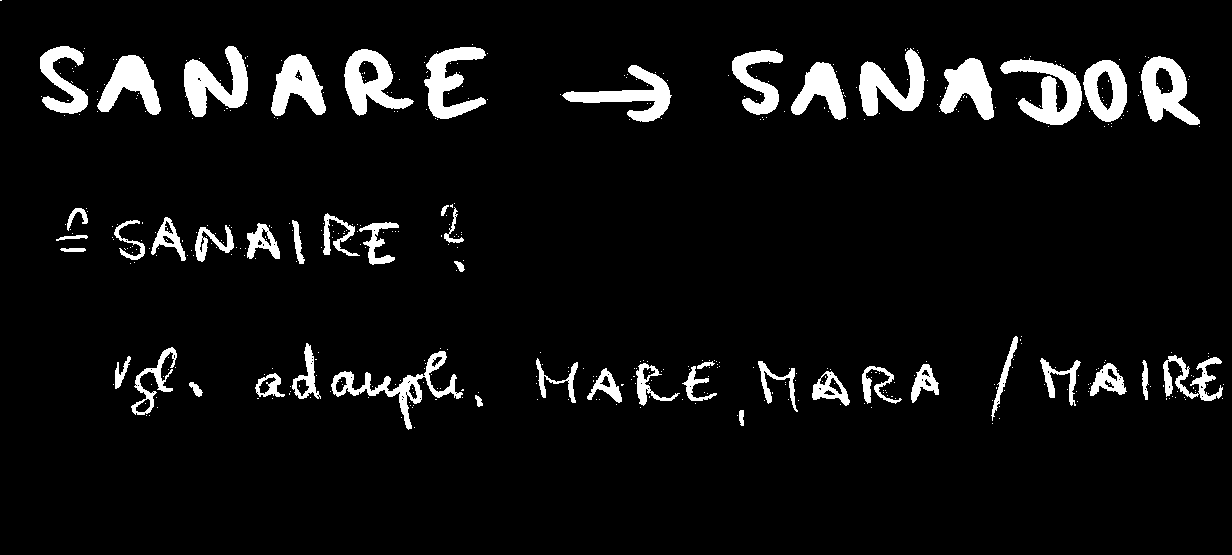 SANARE → SANADOR
≙ SANAIRE ?
vgl. adauph. MARE, MARA / MAIRE